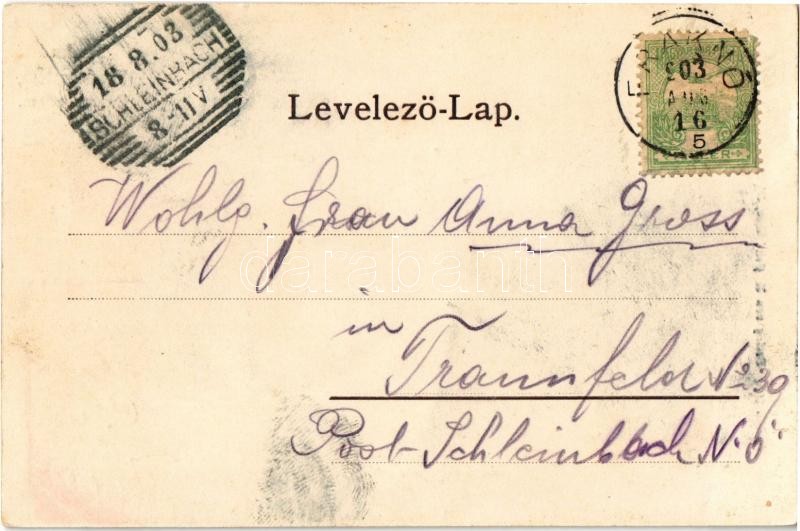 18.8.03
SCHLEINBACH
8-11V
903
AUG
16
5
Levelező-Lap.
Wohlg. Frau Anna Gross
darabanth
in
Traunfeld No 39
Post Schleinbach N.Ö.